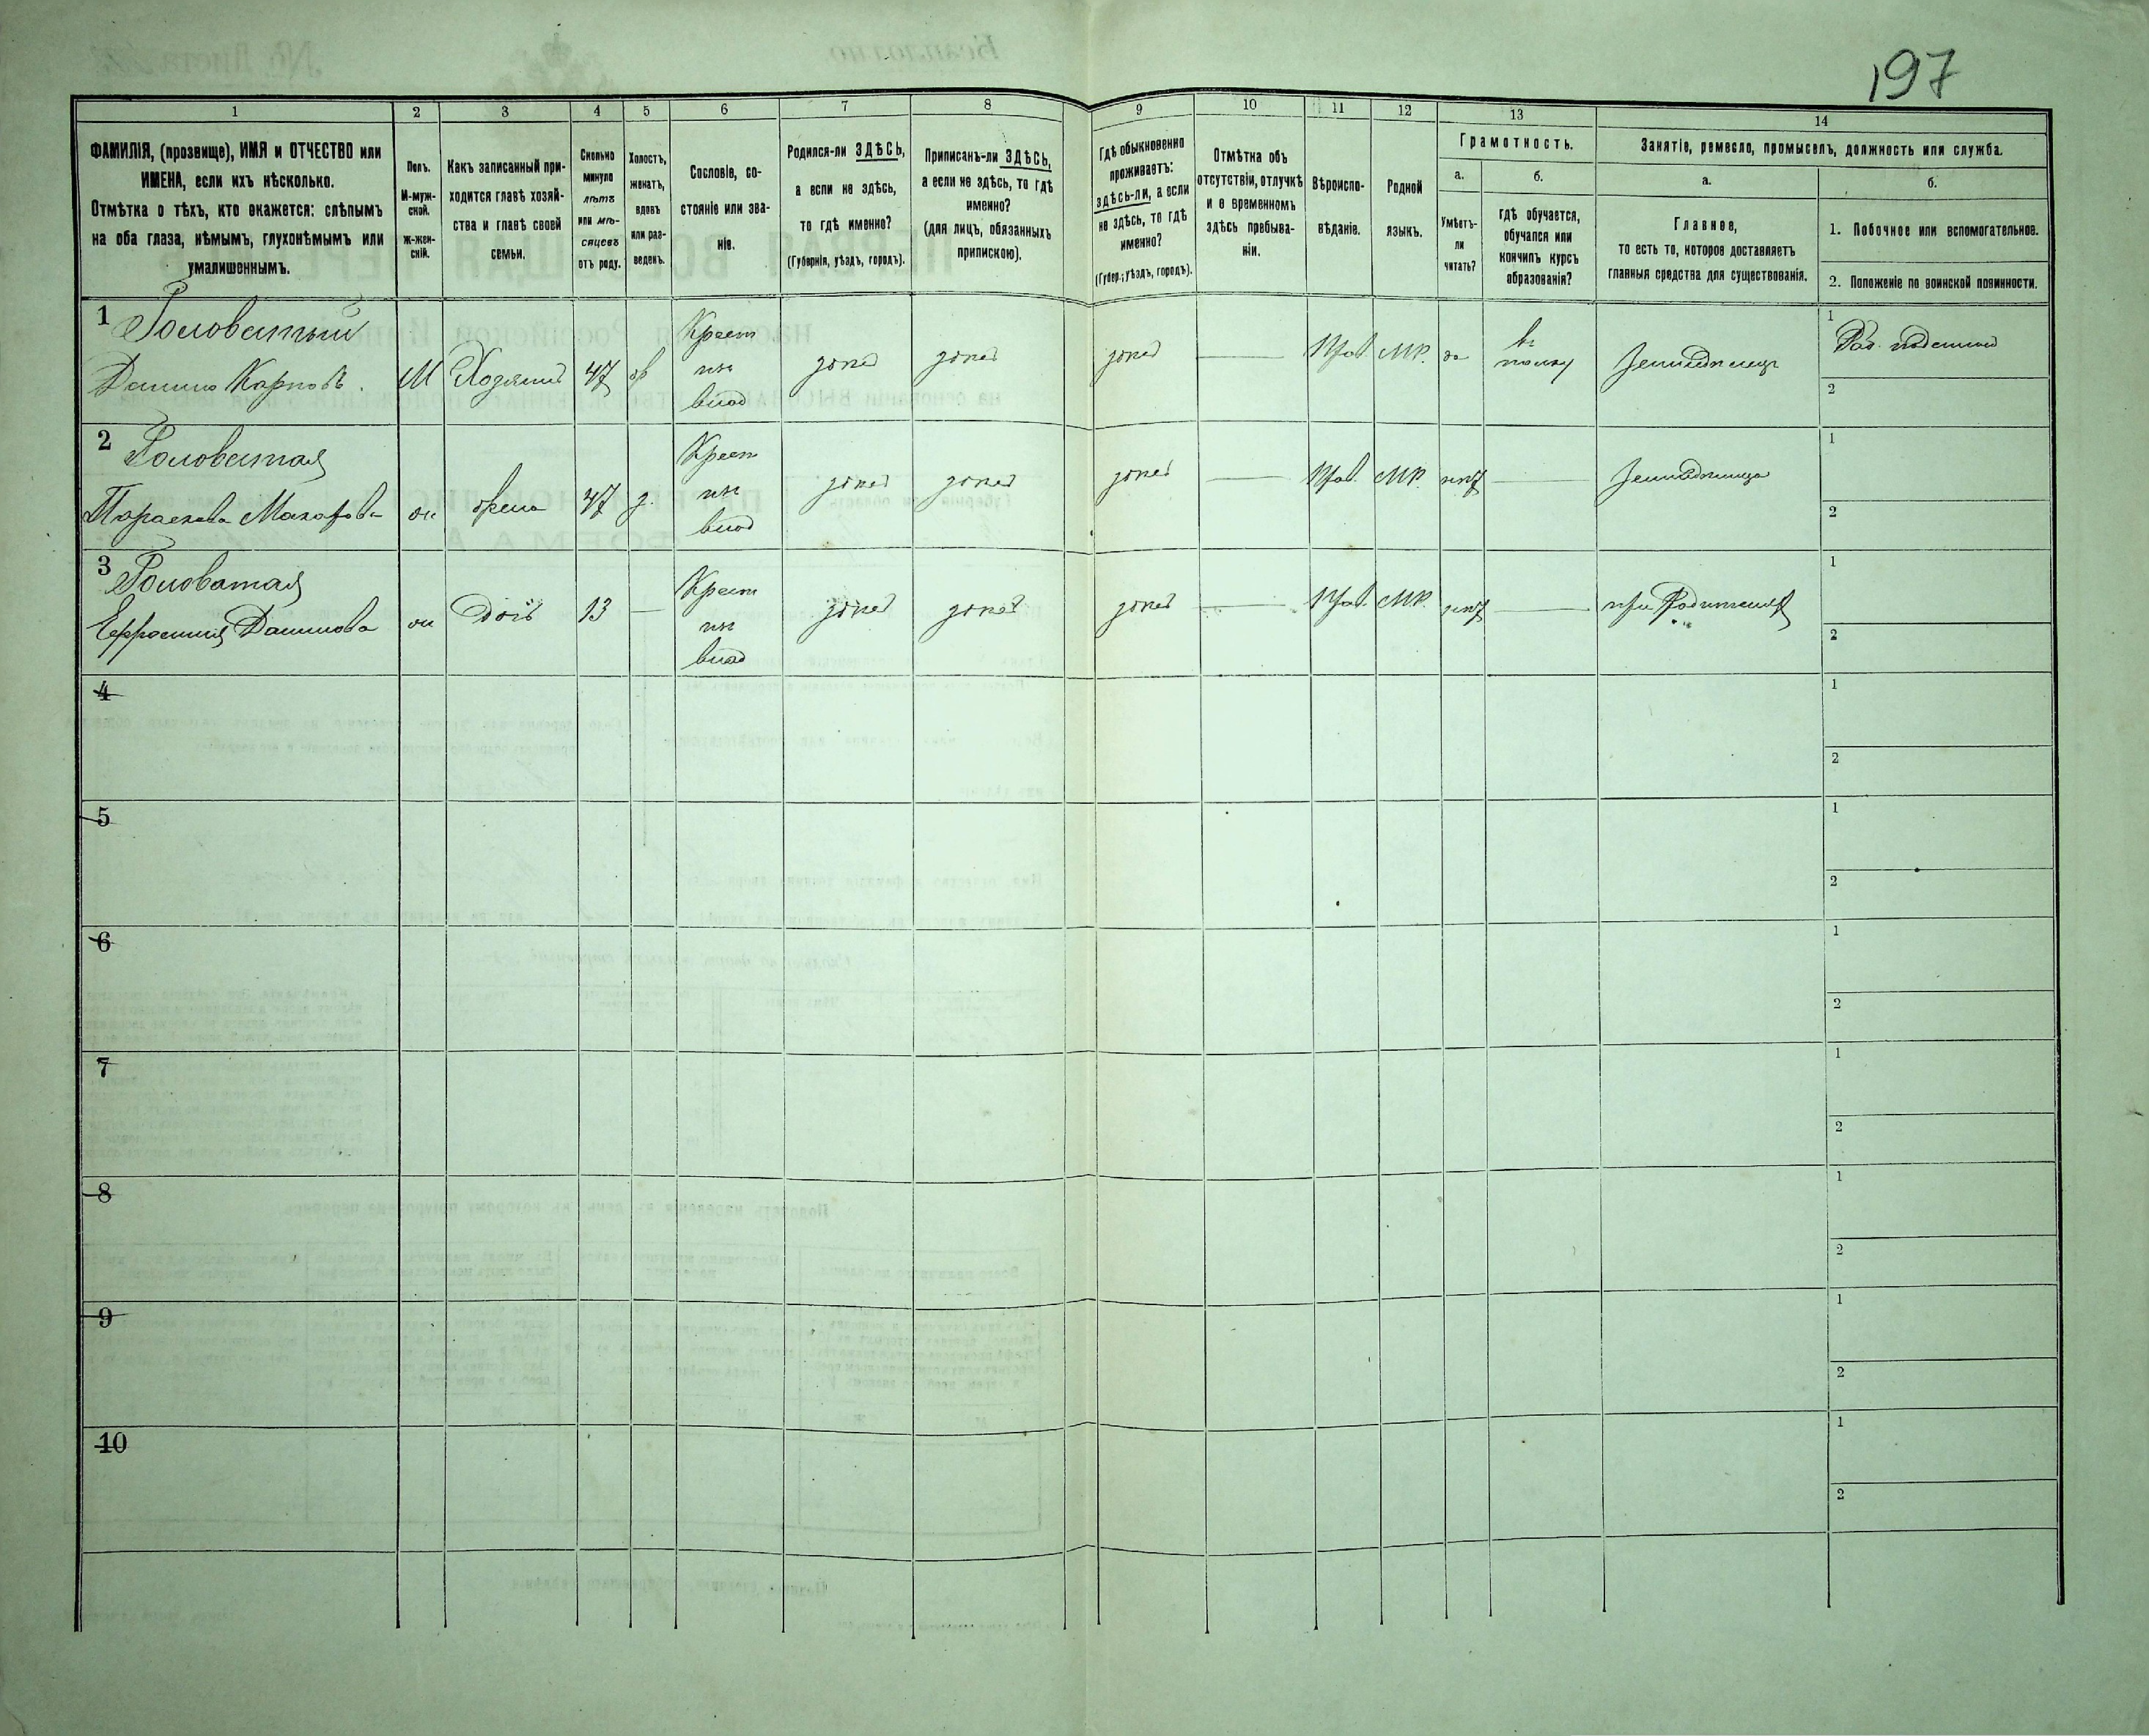 197
1 2 3 4 5 6 7 8 9 10 11 12 13 14
ФАМИЛІЯ, (прозвище), ИМЯ и ОТЧЕСТВО или
ИМЕНА, если ихъ нѣсколько.
Отмѣтка о тѣхъ, кто окажется: слѣпымъ
на оба глаза, нѣмымъ, глухонѣмымъ или
умалишеннымъ.
Полъ.
М-муж-
ской.
Ж-жен-
скій.
Какъ записанный при-
ходится главѣ хозяй-
ства и главѣ своей
семьи.
Сколько
минуло
лѣтъ
или мѣ-
сяцевъ
отъ роду.
Холостъ,
женатъ,
вдовъ
или раз-
веденъ.
Сословіе, со-
стояніе или зва-
ніе.
Родился-ли ЗДѢСЬ,
а если не здѣсь,
то гдѣ именно?
(Губернія, уѣздъ, городъ).
Приписанъ-ли ЗДѢСЬ,
а если не здѣсь, то гдѣ
именно?
(для лицъ, обязанныхъ
припискою).
Гдѣ обыкновенно
проживаетъ:
здѣсь-ли, а если
не здѣсь, то гдѣ
именно?
(Губер., уѣздъ, городъ).
Отмѣтка объ
отсутствіи, отлучкѣ
и о временномъ
здѣсь пребыва-
ніи.
Вѣроиспо-
вѣданіе.
Родной
языкъ.
Грамотность.
а.
Умѣетъ-
ли
читать?
б.
гдѣ обучается,
обучался или
кончилъ курсъ
образованія?
Занятіе, ремесло, промыселъ, должность или служба.
а.
Главное,
то есть то, которое доставляетъ
главныя средства для существованія.
б.
1. Побочное или вспомогательное.
2. Положеніе по воинской повинности.
1 Головатый
Данило Карповъ. М Хозяинъ 47 Крест здѣсь здѣсь здѣсь Прав. МР. да въ полку Земледѣлецъ 1 Раб. поденный
2
2 Головатая
Параскева Макарова жена 47 з. Крест здѣсь здѣсь здѣсь Прав. МР. нѣтъ 1
2
3 Головатая
Ефросинія Данилова дочь 13 Крест здѣсь здѣсь здѣсь Прав. МР. нѣтъ при 1
2
4 1
2
5 1
2
6 1
2
7 1
2
8 1
2
9 1
2
10 1
2